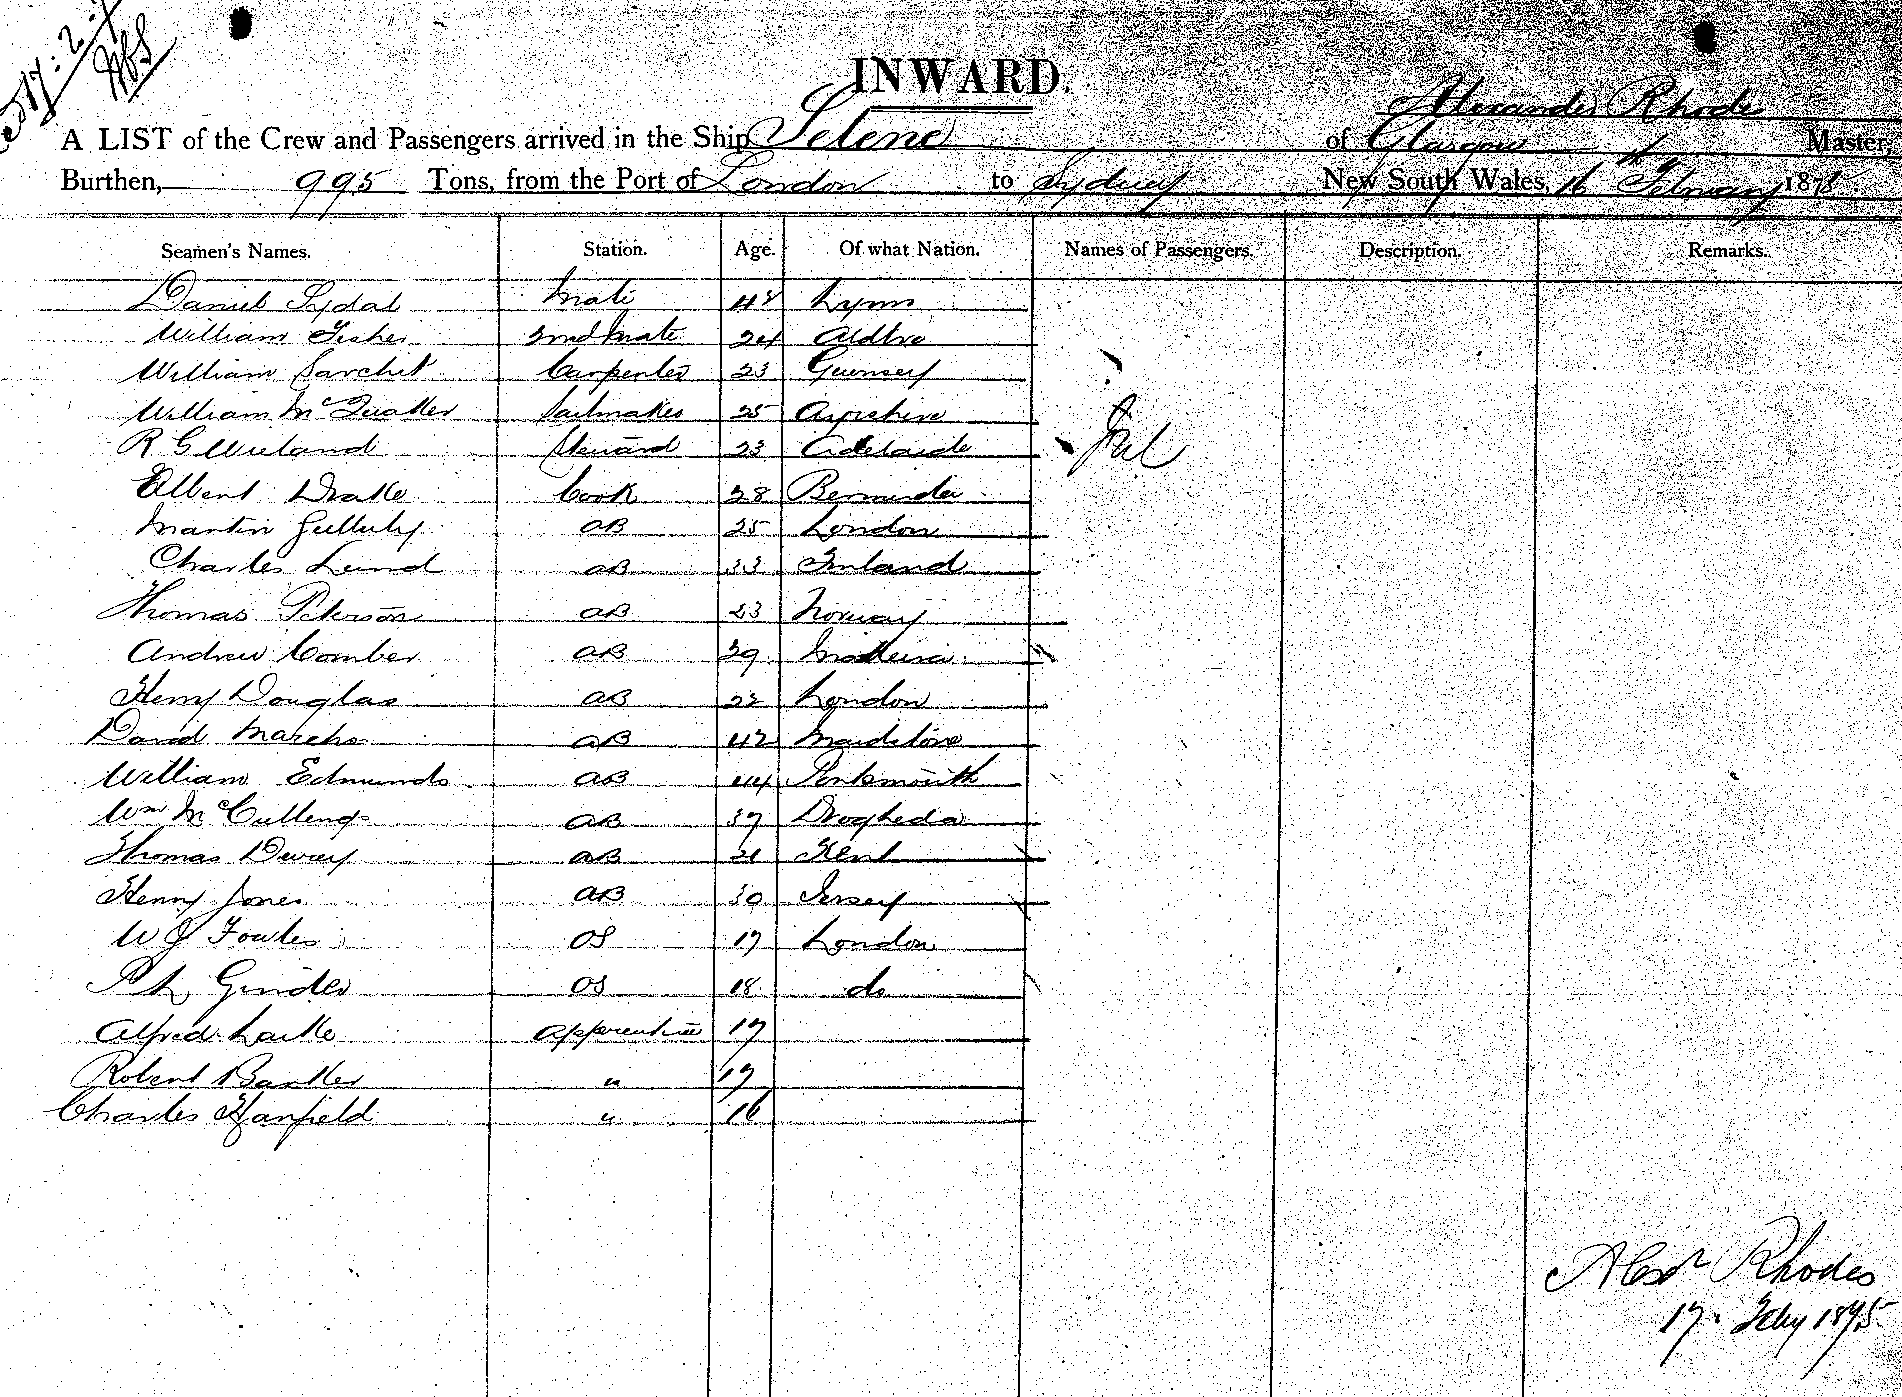 INWARD.
Alexander Rhodes
A LIST of the Crew and Passengers arrived in the Ship Selene of Glasgow Master,
Burthen, 995 Tons, from the Port of London to Sydney New South Wales, 16 February 1875
Seamen's Names. Station. Age. Of what Nation. Names of Passengers. Description. Remarks.
Daniel Mate 48 Lynn
William Fisher 2nd Mate 24
William Sarchet Carpenter 23 Guernsey
William McQuaker Sailmaker 25 Ayrshire
R G Steward 23 Adelaide
Elbert Drake Cook 28 Bermuda
Martin AB 25 London
Charles Lund AB 33 Finland
Thomas Peterson AB 23 Norway
Andrew Comber AB 29 Madeira
Henry Douglas AB 22 London
David AB 42 Maidstone
William Edmunds AB 44 Portsmouth
Wm AB 37 Drogheda
Thomas Dewey AB 21 Kent
Henry Jones AB 30 Jersey
W J Fowles OS 17 London
Grinder OS 18 do
Alfred Apprentice 17
Robert " 17
Charles Hanfield " 16
Alexr Rhodes
17. Feby 1875